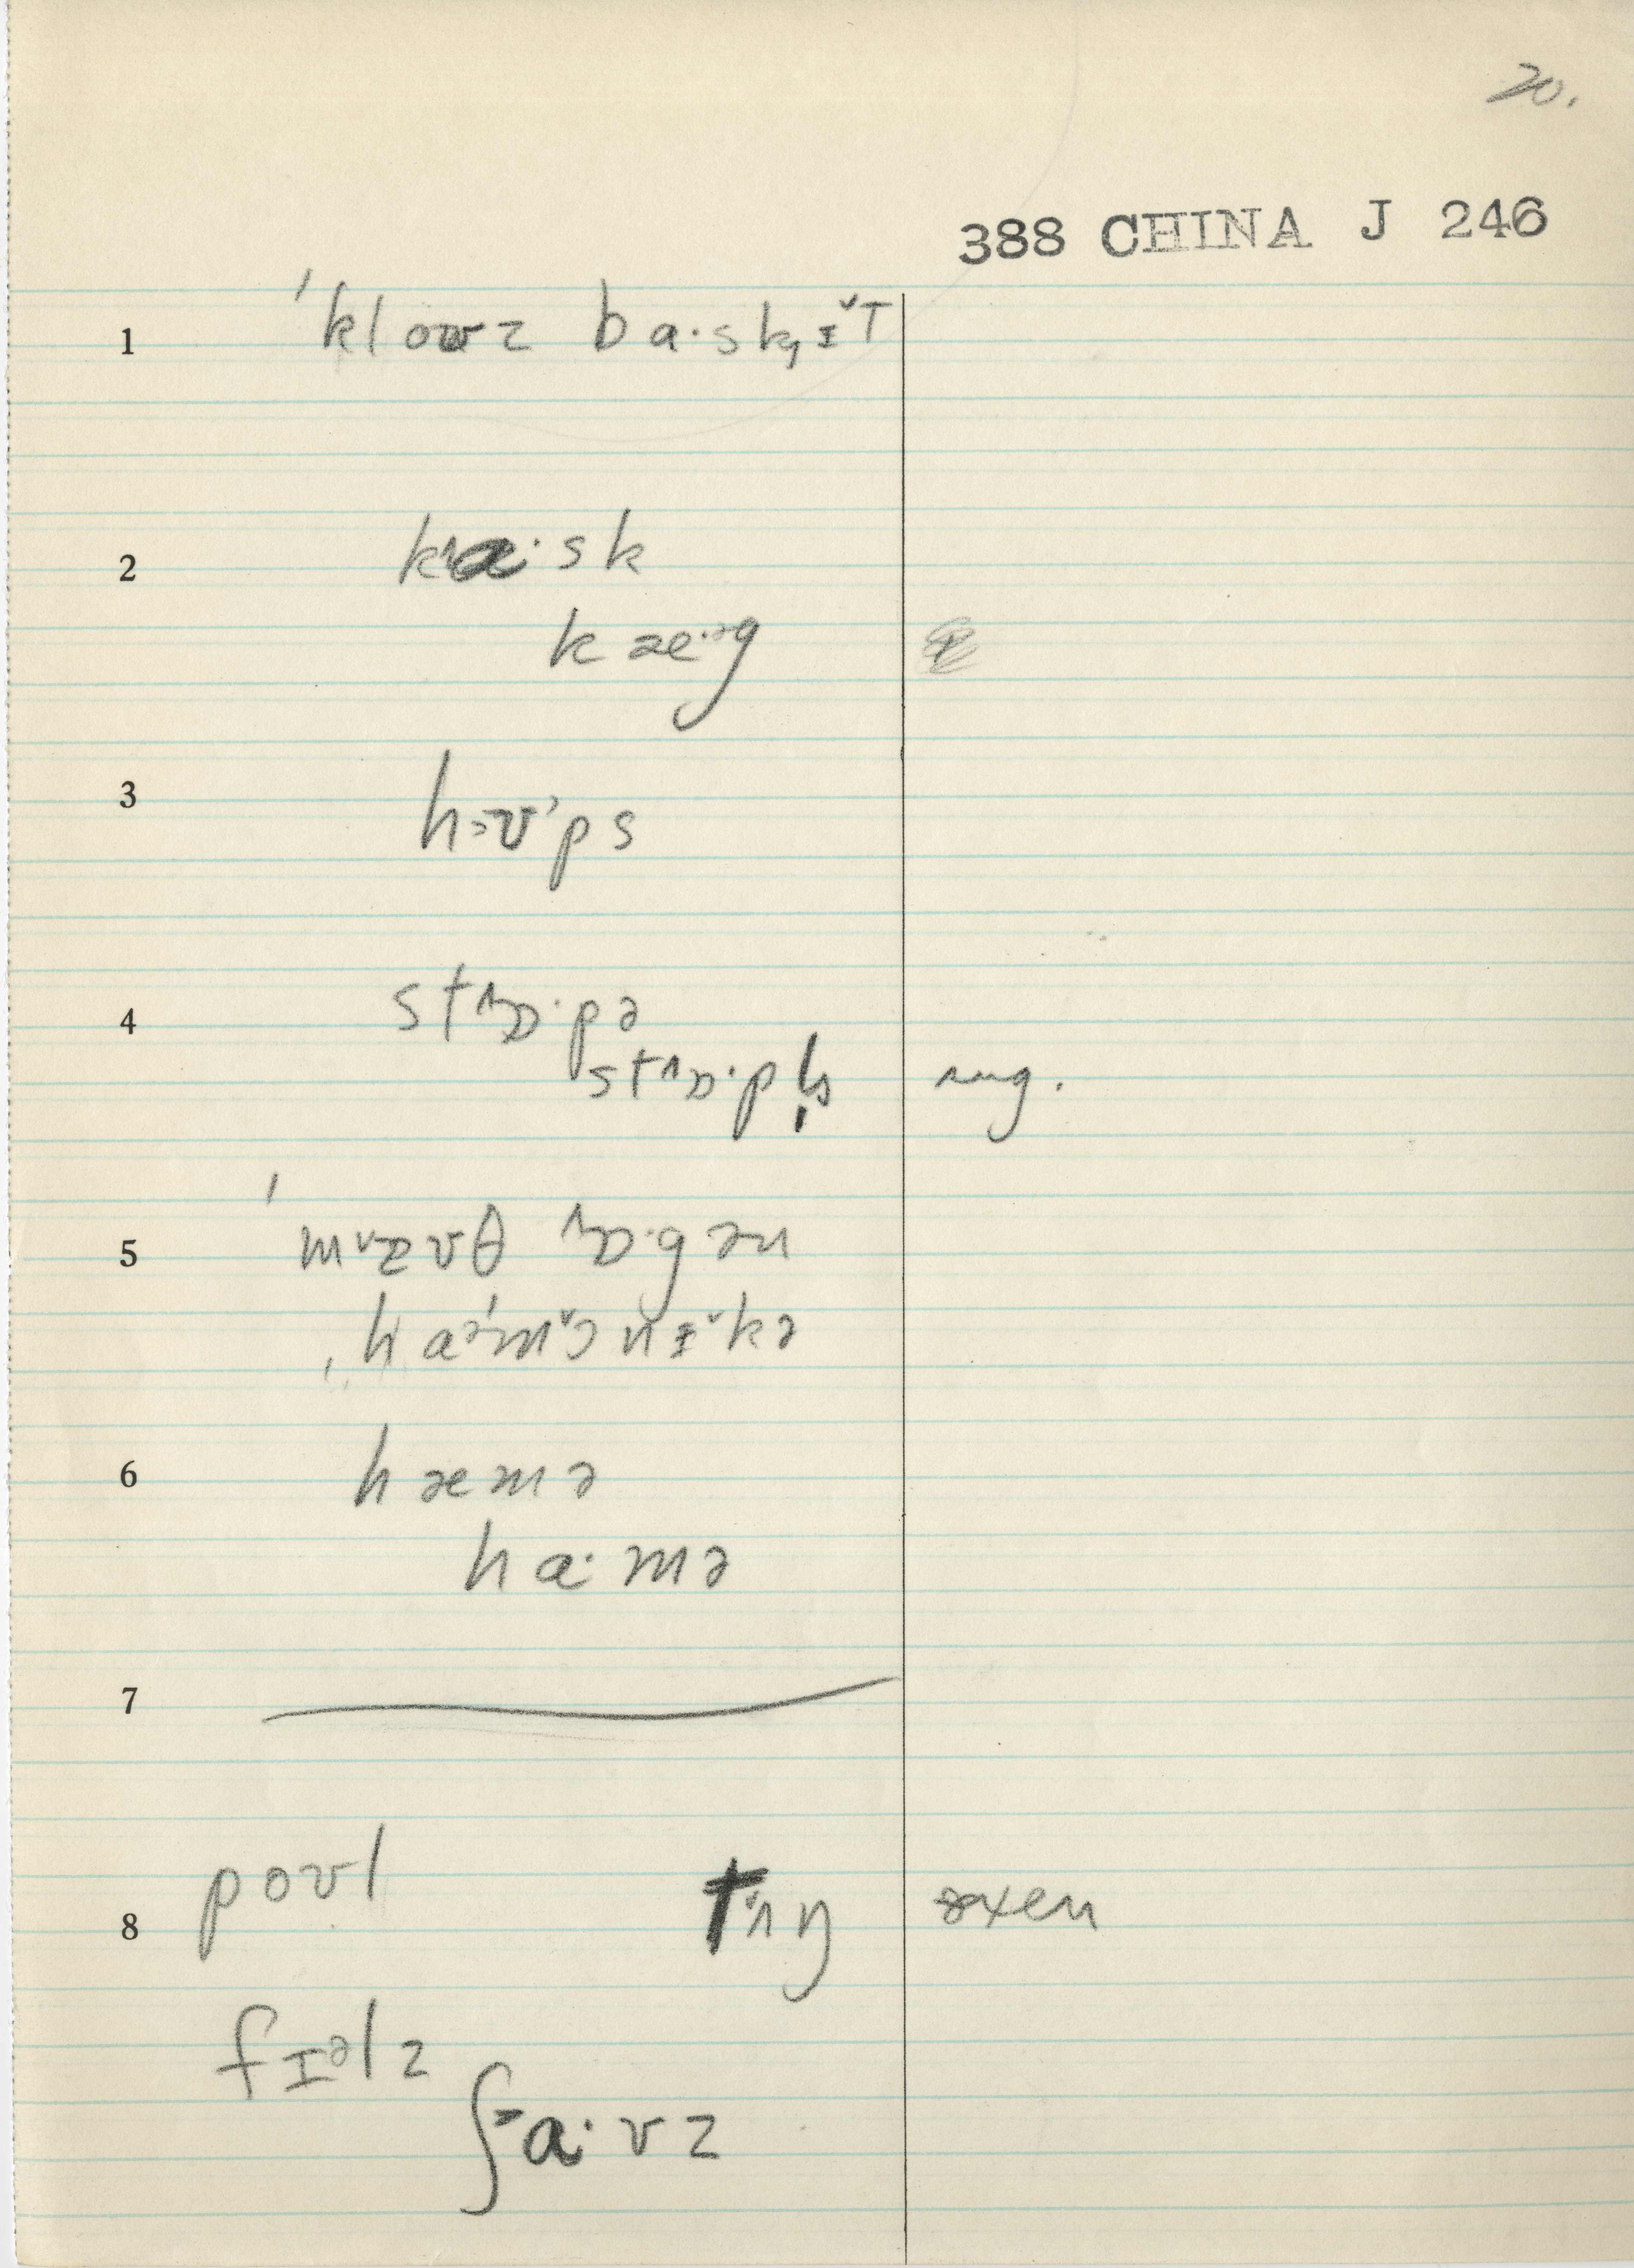 20.
388 CHINA J 246
1 ˈkloʊz ba·sk̡ɪ̌T
2 ka·sk
kæ·ᵊg
3 hʊ'ps
4 st˄ɒ·pə
st˄ɒ·pl̩s sug.
5 ˈm˅ɑʊθ ˄ɒ·gən
ˌhaᵊˈm˅ɔnɪ˅kə
6 hæmə
ha·mə
7
8 poʊl tʌŋ oxen
fɪᵊlz
ʃa·vz